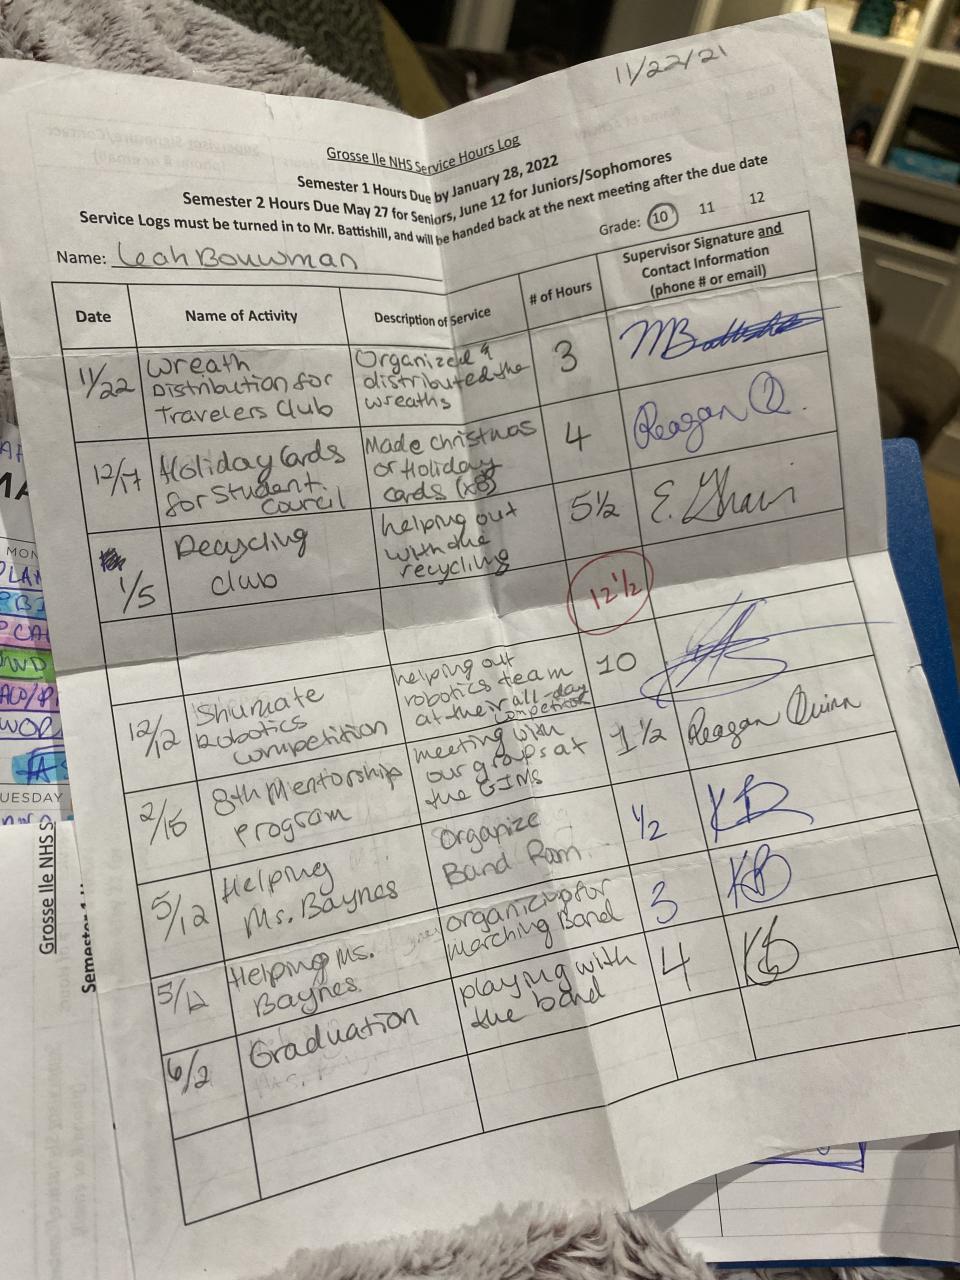 11/22/21
Grosse Ile NHS Service Hours Log
Semester 1 Hours Due by January 28, 2022
Semester 2 Hours Due May 27 for Seniors, June 12 for Juniors/Sophomores
Service Logs must be turned in to Mr. Battishill, and will be handed back at the next meeting after the due date
Grade: 10 11 12
Name: Leah Bouwman
Date
Name of Activity
Description of Service
# of Hours
Supervisor Signature and
Contact Information
(phone # or email)
11/22
Wreath
Distribution for
Travelers Club
Organized &
distributed the
wreaths
3
12/17
Holiday Cards
for Student
Council
Made christmas
or Holiday
cards (x8)
4
Reagan Q.
1/5
Recycling
club
helping out
with the
recycling
5 1/2
12 1/2
12/12
Shumate
Robotics
competition
helping out
robotics team
at their all-day
competition
10
2/15
8th Mentorship
program
meeting with
our groups at
the GIMS
1 1/2
Reagan Quinn
5/12
Helping
Ms. Baynes
Organize
Band Room
1/2
KB
5/12
Helping Ms.
Baynes
organizing for
Marching Band
3
KB
6/2
Graduation
playing with
the band
4
KB
MON
UESDAY
Grosse Ile NHS S